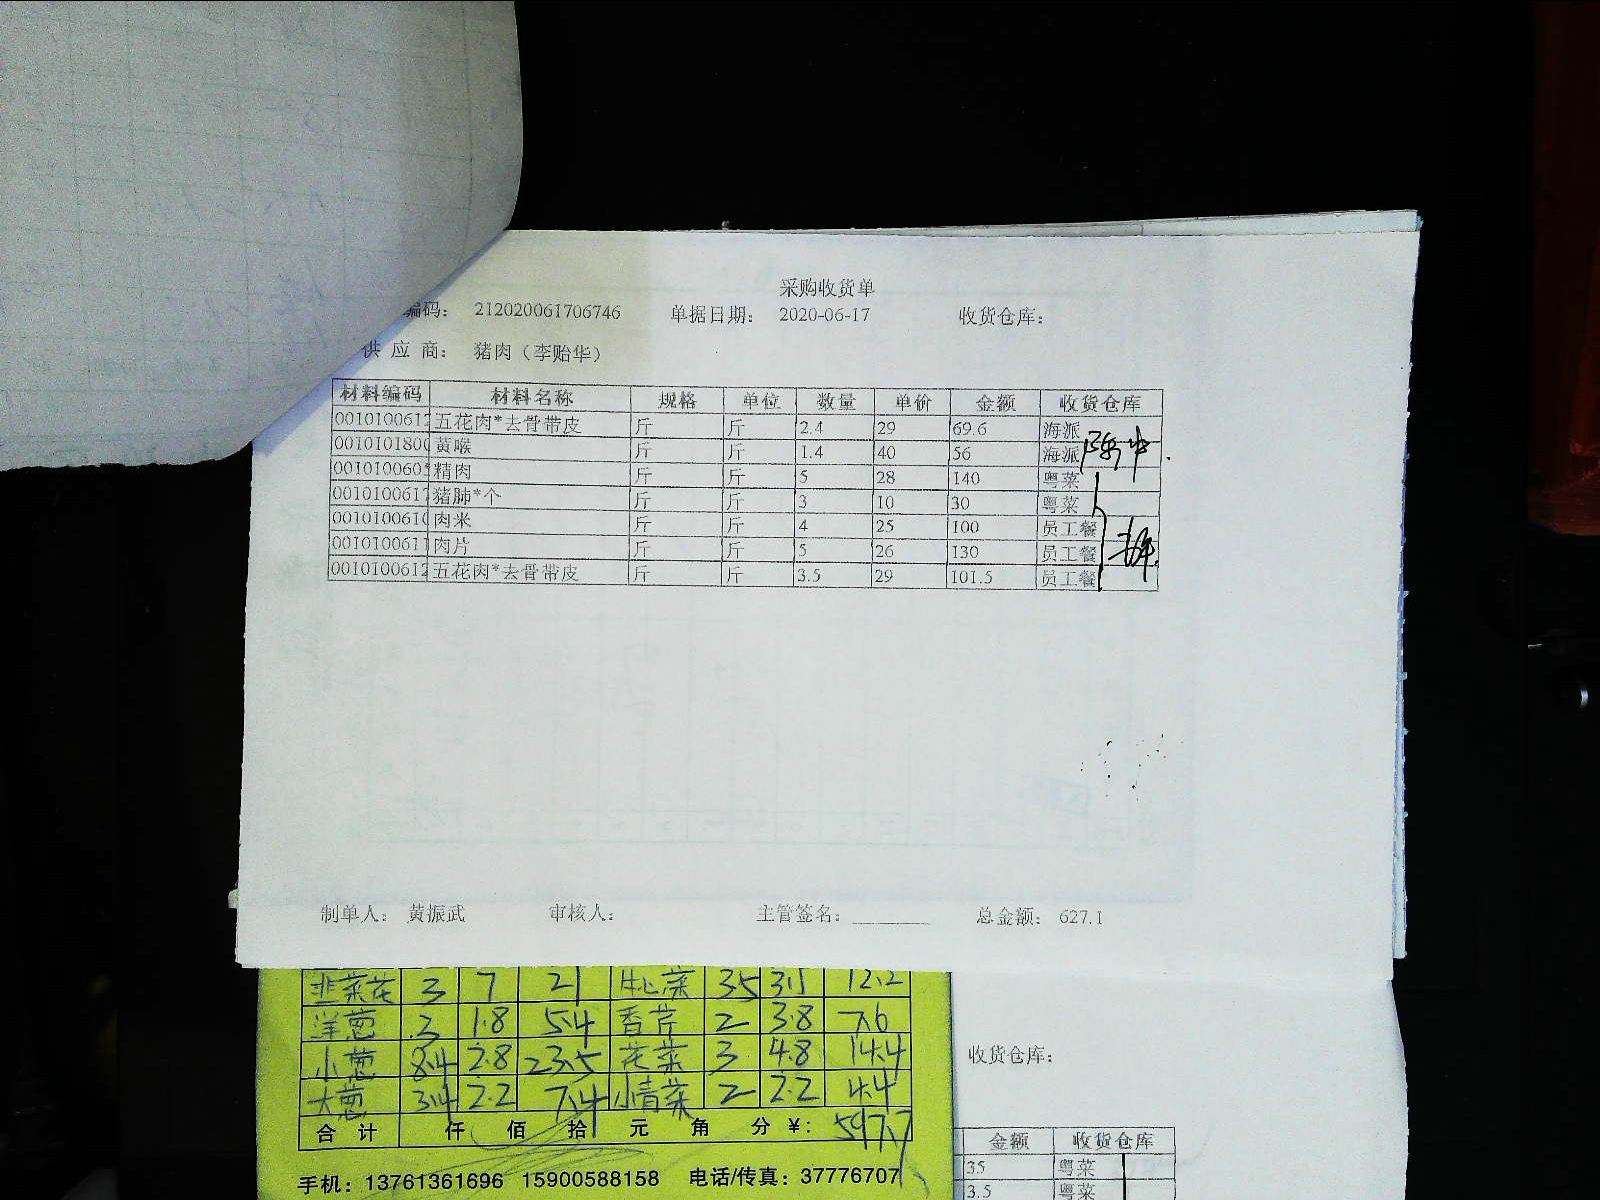 采购收货单
编码: 212020061706746 单据日期: 2020-06-17 收货仓库:
供 应 商: 猪肉（李贻华）
材料编码 材料名称 规格 单位 数量 单价 金额 收货仓库
001010061 五花肉*去骨带皮 斤 斤 2.4 29 69.6 海派
001010180 黄喉 斤 斤 1.4 40 56 海派
001010060 精肉 斤 斤 5 28 140 粤菜
001010061 猪肺*个 斤 斤 3 10 30 粤菜
001010061 肉米 斤 斤 4 25 100 员工餐
001010061 肉片 斤 斤 5 26 130 员工餐
001010061 五花肉*去骨带皮 斤 斤 3.5 29 101.5 员工餐
制单人: 黄振武 审核人: 主管签名: 总金额: 627.1
韭菜花 3 7 21 牛心菜 35 3.5 12.2
洋葱 3 1.8 5.4 香芹 2 3.8 7.6
小葱 8.4 2.8 23.5 花菜 3 4.8 14.4
大葱 3.4 2.2 7.4 小青菜 2 2.2 4.4
合 计 仟 佰 拾 元 角 分 ¥: 597.7
手机: 13761361696 15900588158 电话/传真: 37776707
收货仓库:
金额 收货仓库
35 粤菜
3.5 粤菜